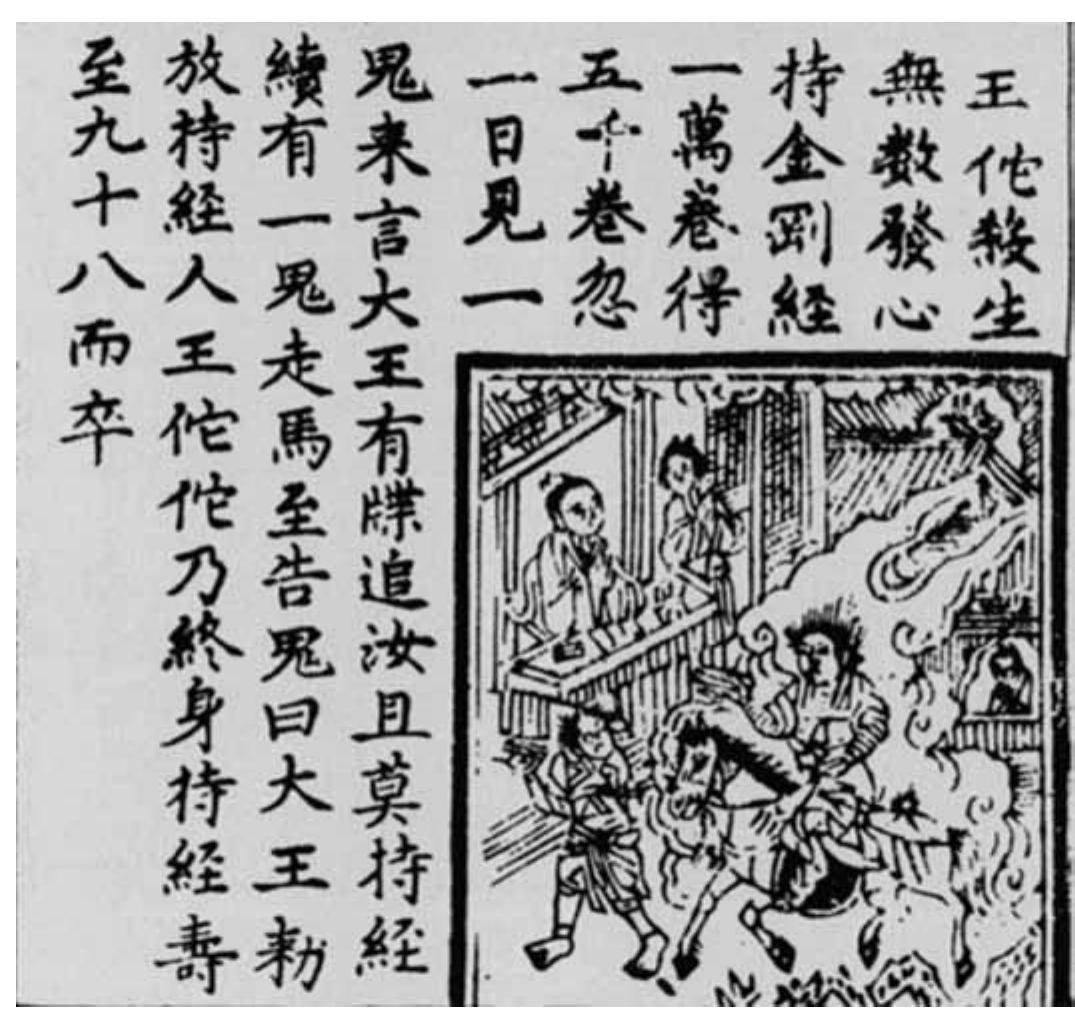 王佗殺生
無数發心
持金剛経
一萬巻得
五千巻忽
一日見一
鬼来言大王有牒追汝且莫持経
續有一鬼走馬至告鬼曰大王勑
放持経人王佗佗乃終身持経壽
至九十八而卒